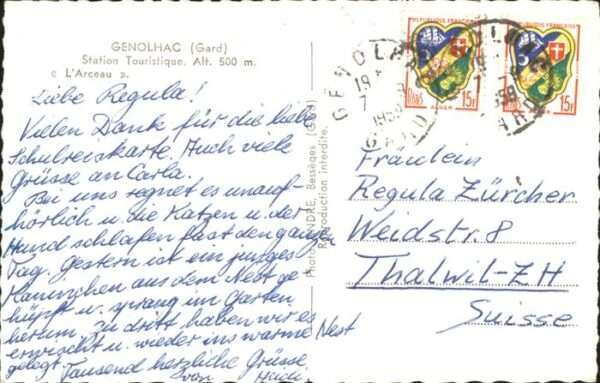 GENOLHAC (Gard)
Station Touristique. Alt. 500 m.
« L'Arceau ».
Liebe Regula!
Vielen Dank für die liebe
Schulreiskarte. Auch viele
Grüsse an Carla.
Bei uns regnet es unauf-
hörlich u. die Katzen u. der
Hund schlafen fast den ganzen
Tag. Gestern ist ein junges
Kaninchen aus dem Nest ge-
hüpft u. sprang im Garten
herum, zu dritt haben wir es
erwischt u. wieder ins warme Nest
gelegt. Tausend herzliche Grüsse
von Heidi
Photo ANDRE, Bessèges (Gard)
Reproduction interdite.
REPUBLIQUE FRANÇAISE
ALGER
15F
REPUBLIQUE FRANÇAISE
ALGER
15F
GENOLHAC
GARD
Fräulein
Regula Zürcher
Weidstr. 8
Thalwil-ZH
Suisse